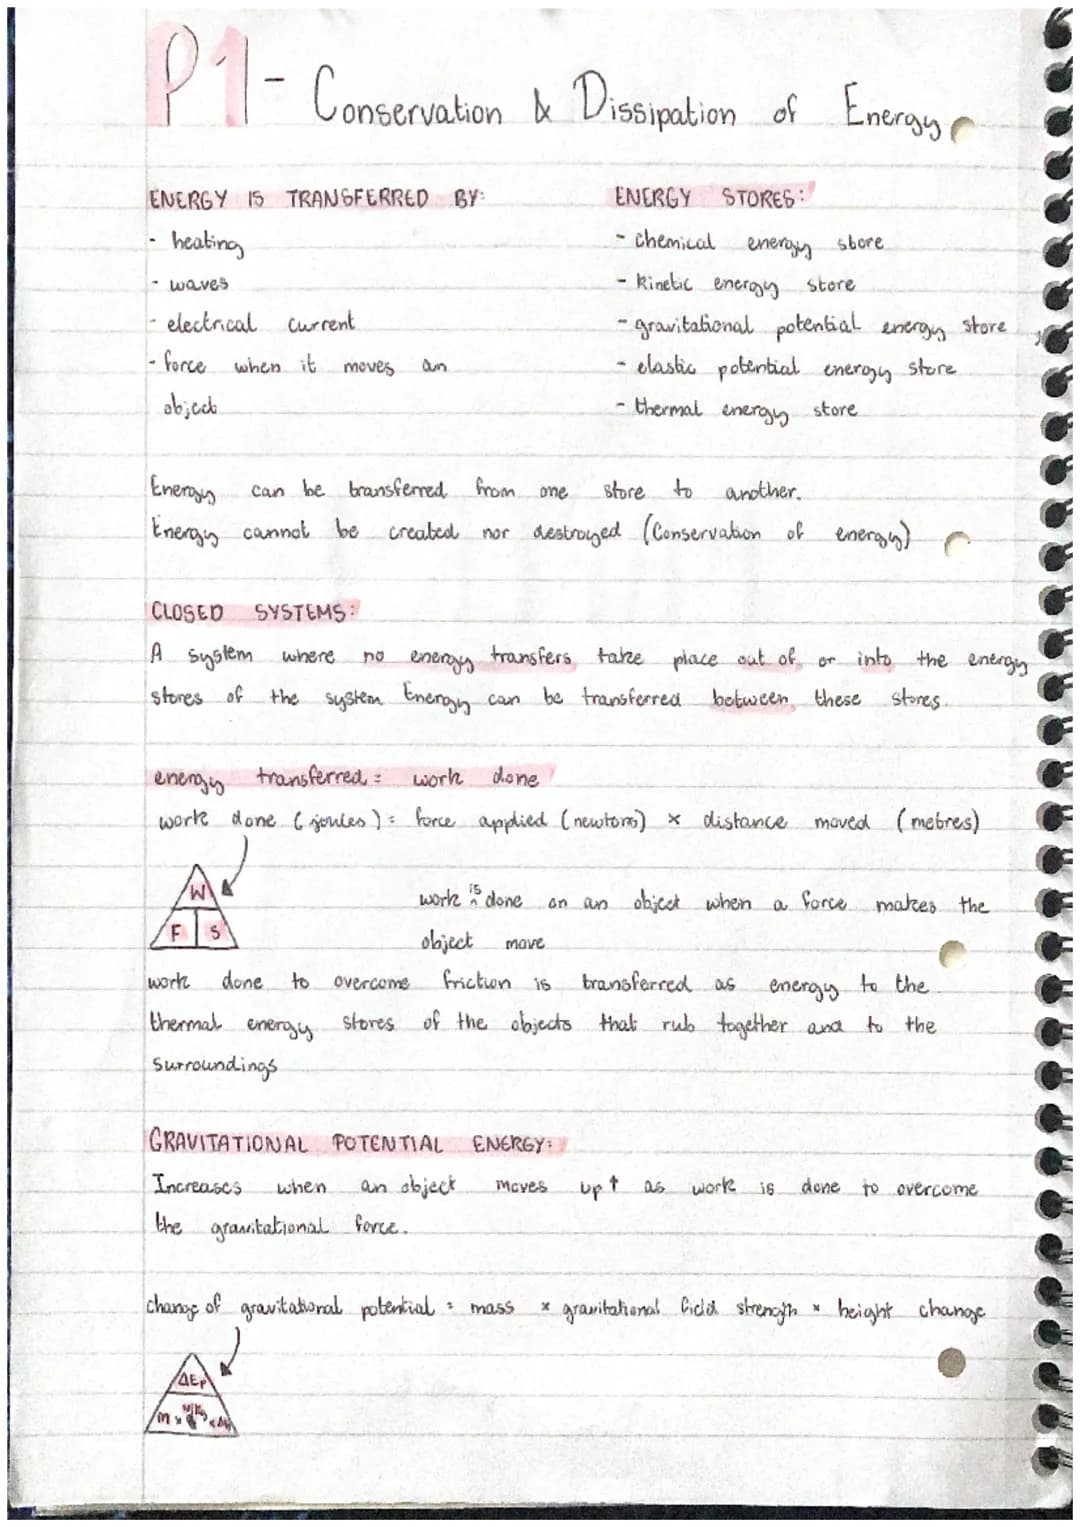 P1 - Conservation & Dissipation of Energy
ENERGY IS TRANSFERRED BY:
- heating
- waves
- electrical current
- force when it moves an
object
ENERGY STORES:
- chemical energy store
- kinetic energy store
- gravitational potential energy store
- elastic potential energy store
- thermal energy store
Energy can be transferred from one store to another.
Energy cannot be created nor destroyed (Conservation of energy)
CLOSED SYSTEMS:
A system where no energy transfers take place out of or into the energy
stores of the system. Energy can be transferred between these stores.
energy transferred = work done
work done (joules) = force applied (newtons) × distance moved (metres)
W
F S
work is done on an object when a force makes the
object move
work done to overcome friction is transferred as energy to the
thermal energy stores of the objects that rub together and to the
surroundings
GRAVITATIONAL POTENTIAL ENERGY:
Increases when an object moves up ↑ as work is done to overcome
the gravitational force.
change of gravitational potential = mass × gravitational field strength × height change
ΔEp
m × × Δh